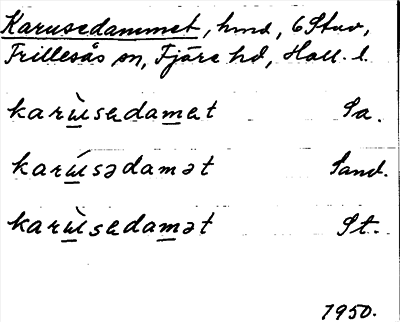 Karusedammet, hmd, 6 Stav,
Frillesås sn, Fjäre hd, Hall. l.
karù̲sedam̲et Sa.
karú̲sədamət Sand.
karù̲sedam̲ət St.
1950.